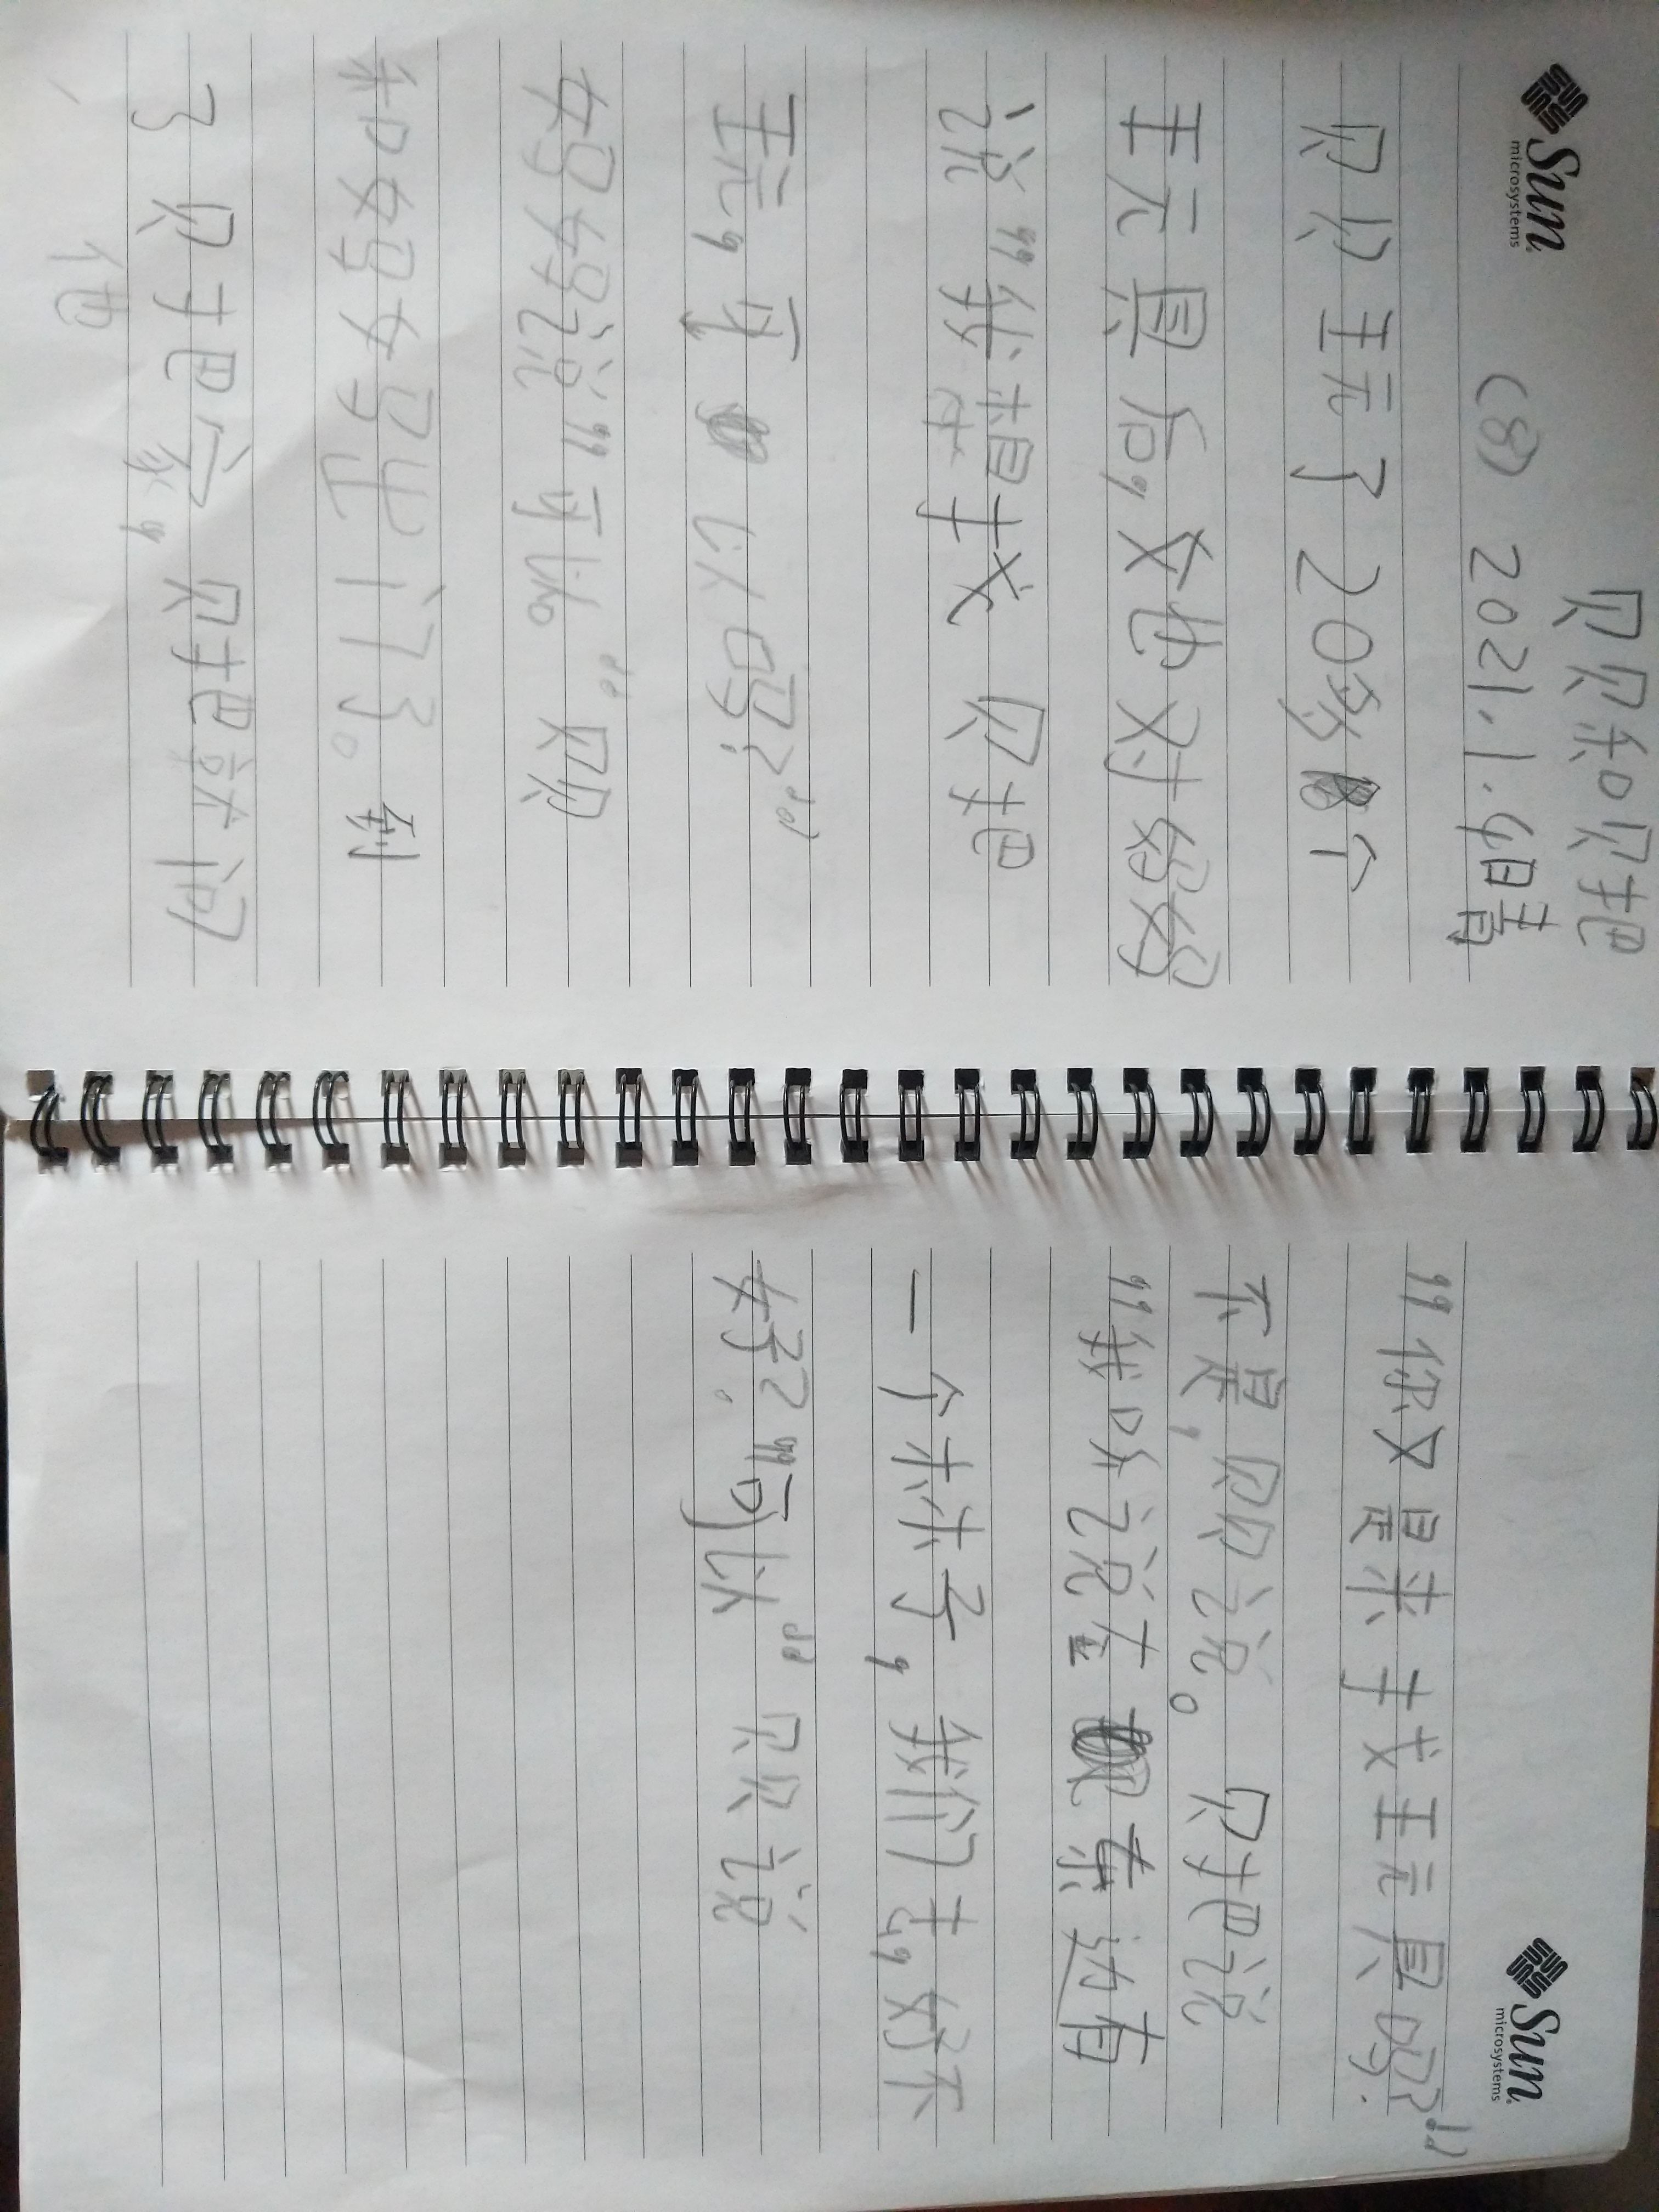 Sun
microsystems
贝贝和贝把
(8) 2021.1.4日晴
贝贝玩了20多个
玩具后,她对妈妈
说“我想找贝把
玩,可以吗?”
妈妈说“可以。”贝贝
和妈妈出门了。到
了贝把家,贝把就问
他
Sun
microsystems
“你又是来找玩具吗?”
不是,贝贝说。贝把说
“我听说在东边有
一个林子,我们去,好不
好?”“可以”贝贝说